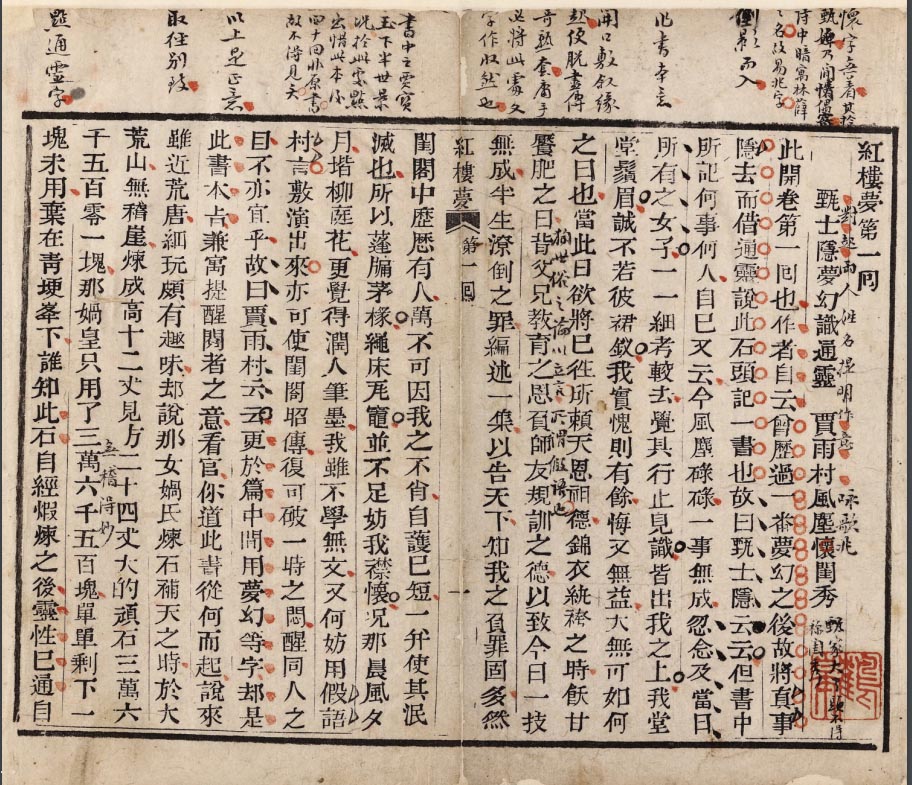 紅樓夢第一囘
甄士隱夢幻識通靈　賈雨村風塵懷閨秀
此開卷第一囘也作者自云曾歷過一番夢幻之後故將真事
隱去而借通靈說此石頭記一書也故曰甄士隱云云但書中
所記何事何人自己又云今風塵碌碌一事無成忽念及當日
所有之女子一一細考較去覺其行止見識皆出我之上我堂
堂鬚眉誠不若彼裙釵我實愧則有餘悔又無益大無可如何
之日也當此日欲將已往所賴天恩祖德錦衣紈袴之時飫甘
饜肥之日背父兄教育之恩負師友規訓之德以致今日一技
無成半生潦倒之罪編述一集以告天下知我之負罪固多然
紅樓夢　第一囘　一
閨閣中歷歷有人萬不可因我之不肖自護己短一弁使其泯
滅也所以蓬牖茅椽繩床瓦竈並不足妨我襟懷况那晨風夕
月堦柳庭花更覺得潤人筆墨我雖不學無文又何妨用假語
村言敷演出來亦可使閨閣昭傳復可破一時之悶醒同人之
目不亦宜乎故曰賈雨村云云更於篇中間用夢幻等字却是
此書本㫖兼寓提醒閱者之意看官你道此書從何而起說來
雖近荒唐細玩頗有趣味却說那女媧氏煉石補天之時於大
荒山無稽崖煉成高十二丈見方二十四丈大的頑石三萬六
千五百零一塊那媧皇只用了三萬六千五百塊單單剩下一
塊未用棄在青埂峯下誰知此石自經煅煉之後靈性已通自
倒影而入
此書本意
開口敷敘緣
起便脫盡傳
奇熟套庸手
必將此處文
字作收然也
書中主要寶
玉下半世景
况於此處點
出惜此本係
四十回非原書
故不得見矣
以上是正意
取徑別致
點通靈字
對起兩人姓名揮明作意
無稽得妙